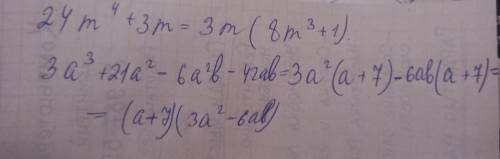 24m⁴ + 3m = 3m(8m³+1).
3a³+21a²-6a²b-42ab=3a²(a+7)-6ab(a+7)=
= (a+7)(3a²-6ab)